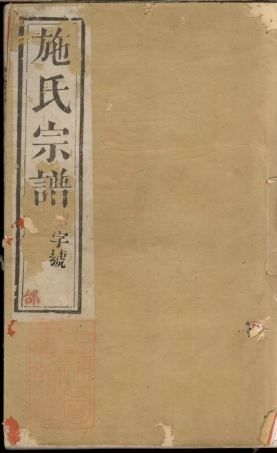 施氏宗譜
字號